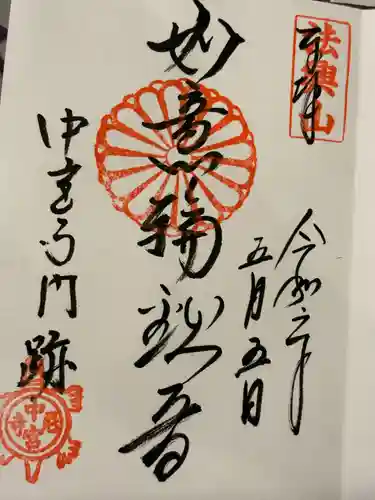 法興山
奉拝
令和六年
五月五日
如意輪観音
中宮寺門跡